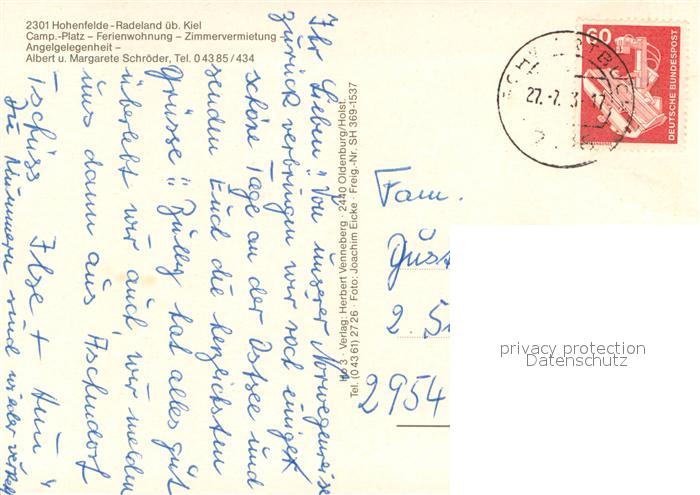 2301 Hohenfelde-Radeland üb. Kiel
Camp.-Platz – Ferienwohnung – Zimmervermietung –
Angelgelegenheit –
Albert u. Margarete Schröder, Tel. 0 43 85 / 434
Ihr Lieben! Von unserer Norwegenreise
zurück verbringen wir noch einige
schöne Tage an der Ostsee und
senden Euch die herzlichsten
Grüsse!! hat alles gut
überlebt, wir auch, wir melden
uns dann aus Aschendorf
Tschüss Ilse +
Die Nummern sind wieder
Ho 3 · Verlag: Herbert Venneberg · 2440 Oldenburg/Holst.
Tel. (0 43 61) 27 26 · Foto: Joachim Eicke · Freig.-Nr. SH 369-1537
60
DEUTSCHE BUNDESPOST
27.-7.
Fam.
2.
2954
privacy protection
Datenschutz